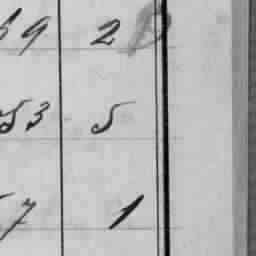 69 2
53 5
7 1